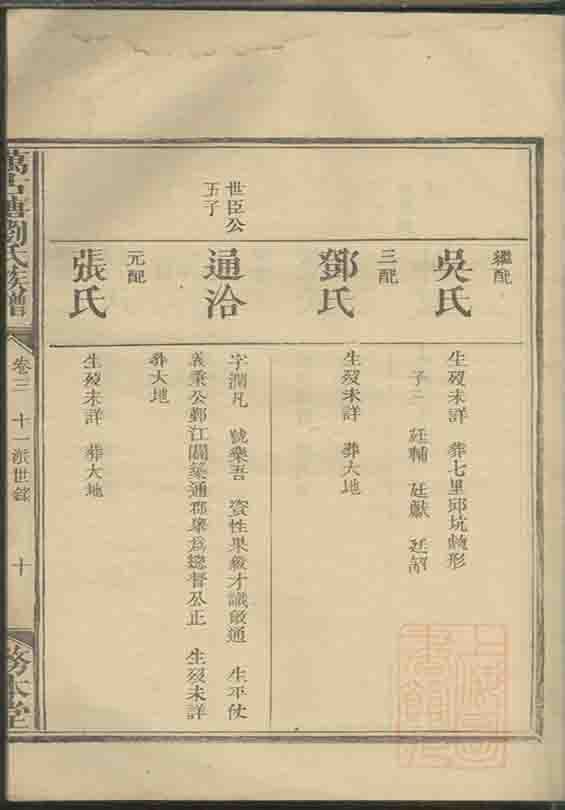 繼配
吳氏
生歿未詳 葬七里邱坑 形
子三 廷輔 廷獻 廷
三配
鄧氏
生歿未詳 葬大地
世臣公
五子
通洽
字潤凡 號樂吾 資性果毅才識敏通 生平仗
義秉公鄞江闢築通郡舉為總督公正 生歿未詳
葬大地
元配
張氏
生歿未詳 葬大地
劉氏族譜
卷三 十一派世錄 十
務本堂
上海圖
書館藏